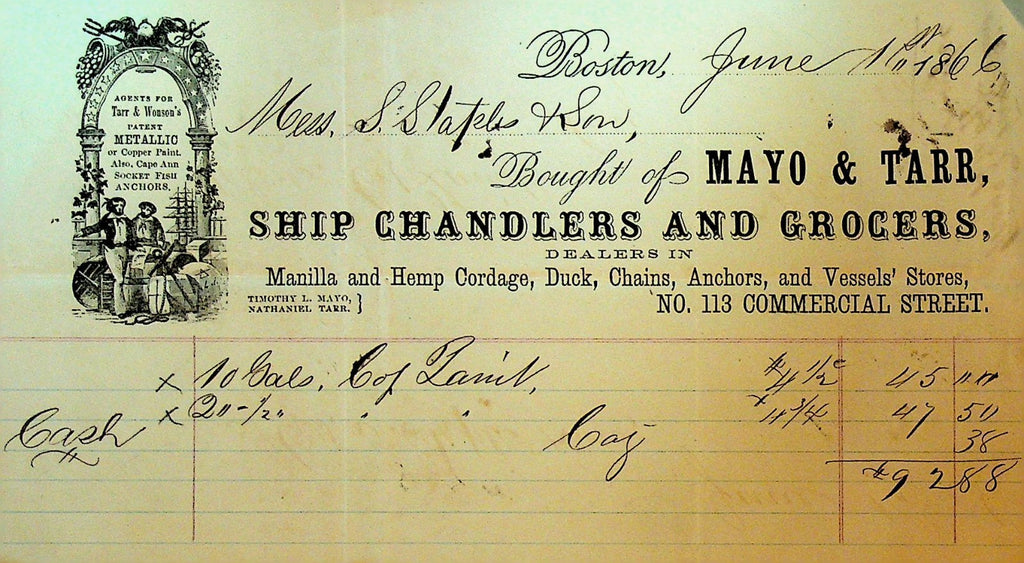 Boston, June 1st 1866
Mess. S. Staples & Son,
Bought of MAYO & TARR,
SHIP CHANDLERS AND GROCERS,
DEALERS IN
Manilla and Hemp Cordage, Duck, Chains, Anchors, and Vessels' Stores,
TIMOTHY L. MAYO,
NATHANIEL TARR. }
NO. 113 COMMERCIAL STREET.
AGENTS FOR
Tarr & Wonson's
PATENT
METALLIC
or Copper Paint.
Also, Cape Ann
SOCKET FISH
ANCHORS.
x 10 Gals. Cop Paint, $4 1/2 45 " "
x 2 " - 1/2 " " " 4 3/4 47 50
Cash Cag 38
$92 88